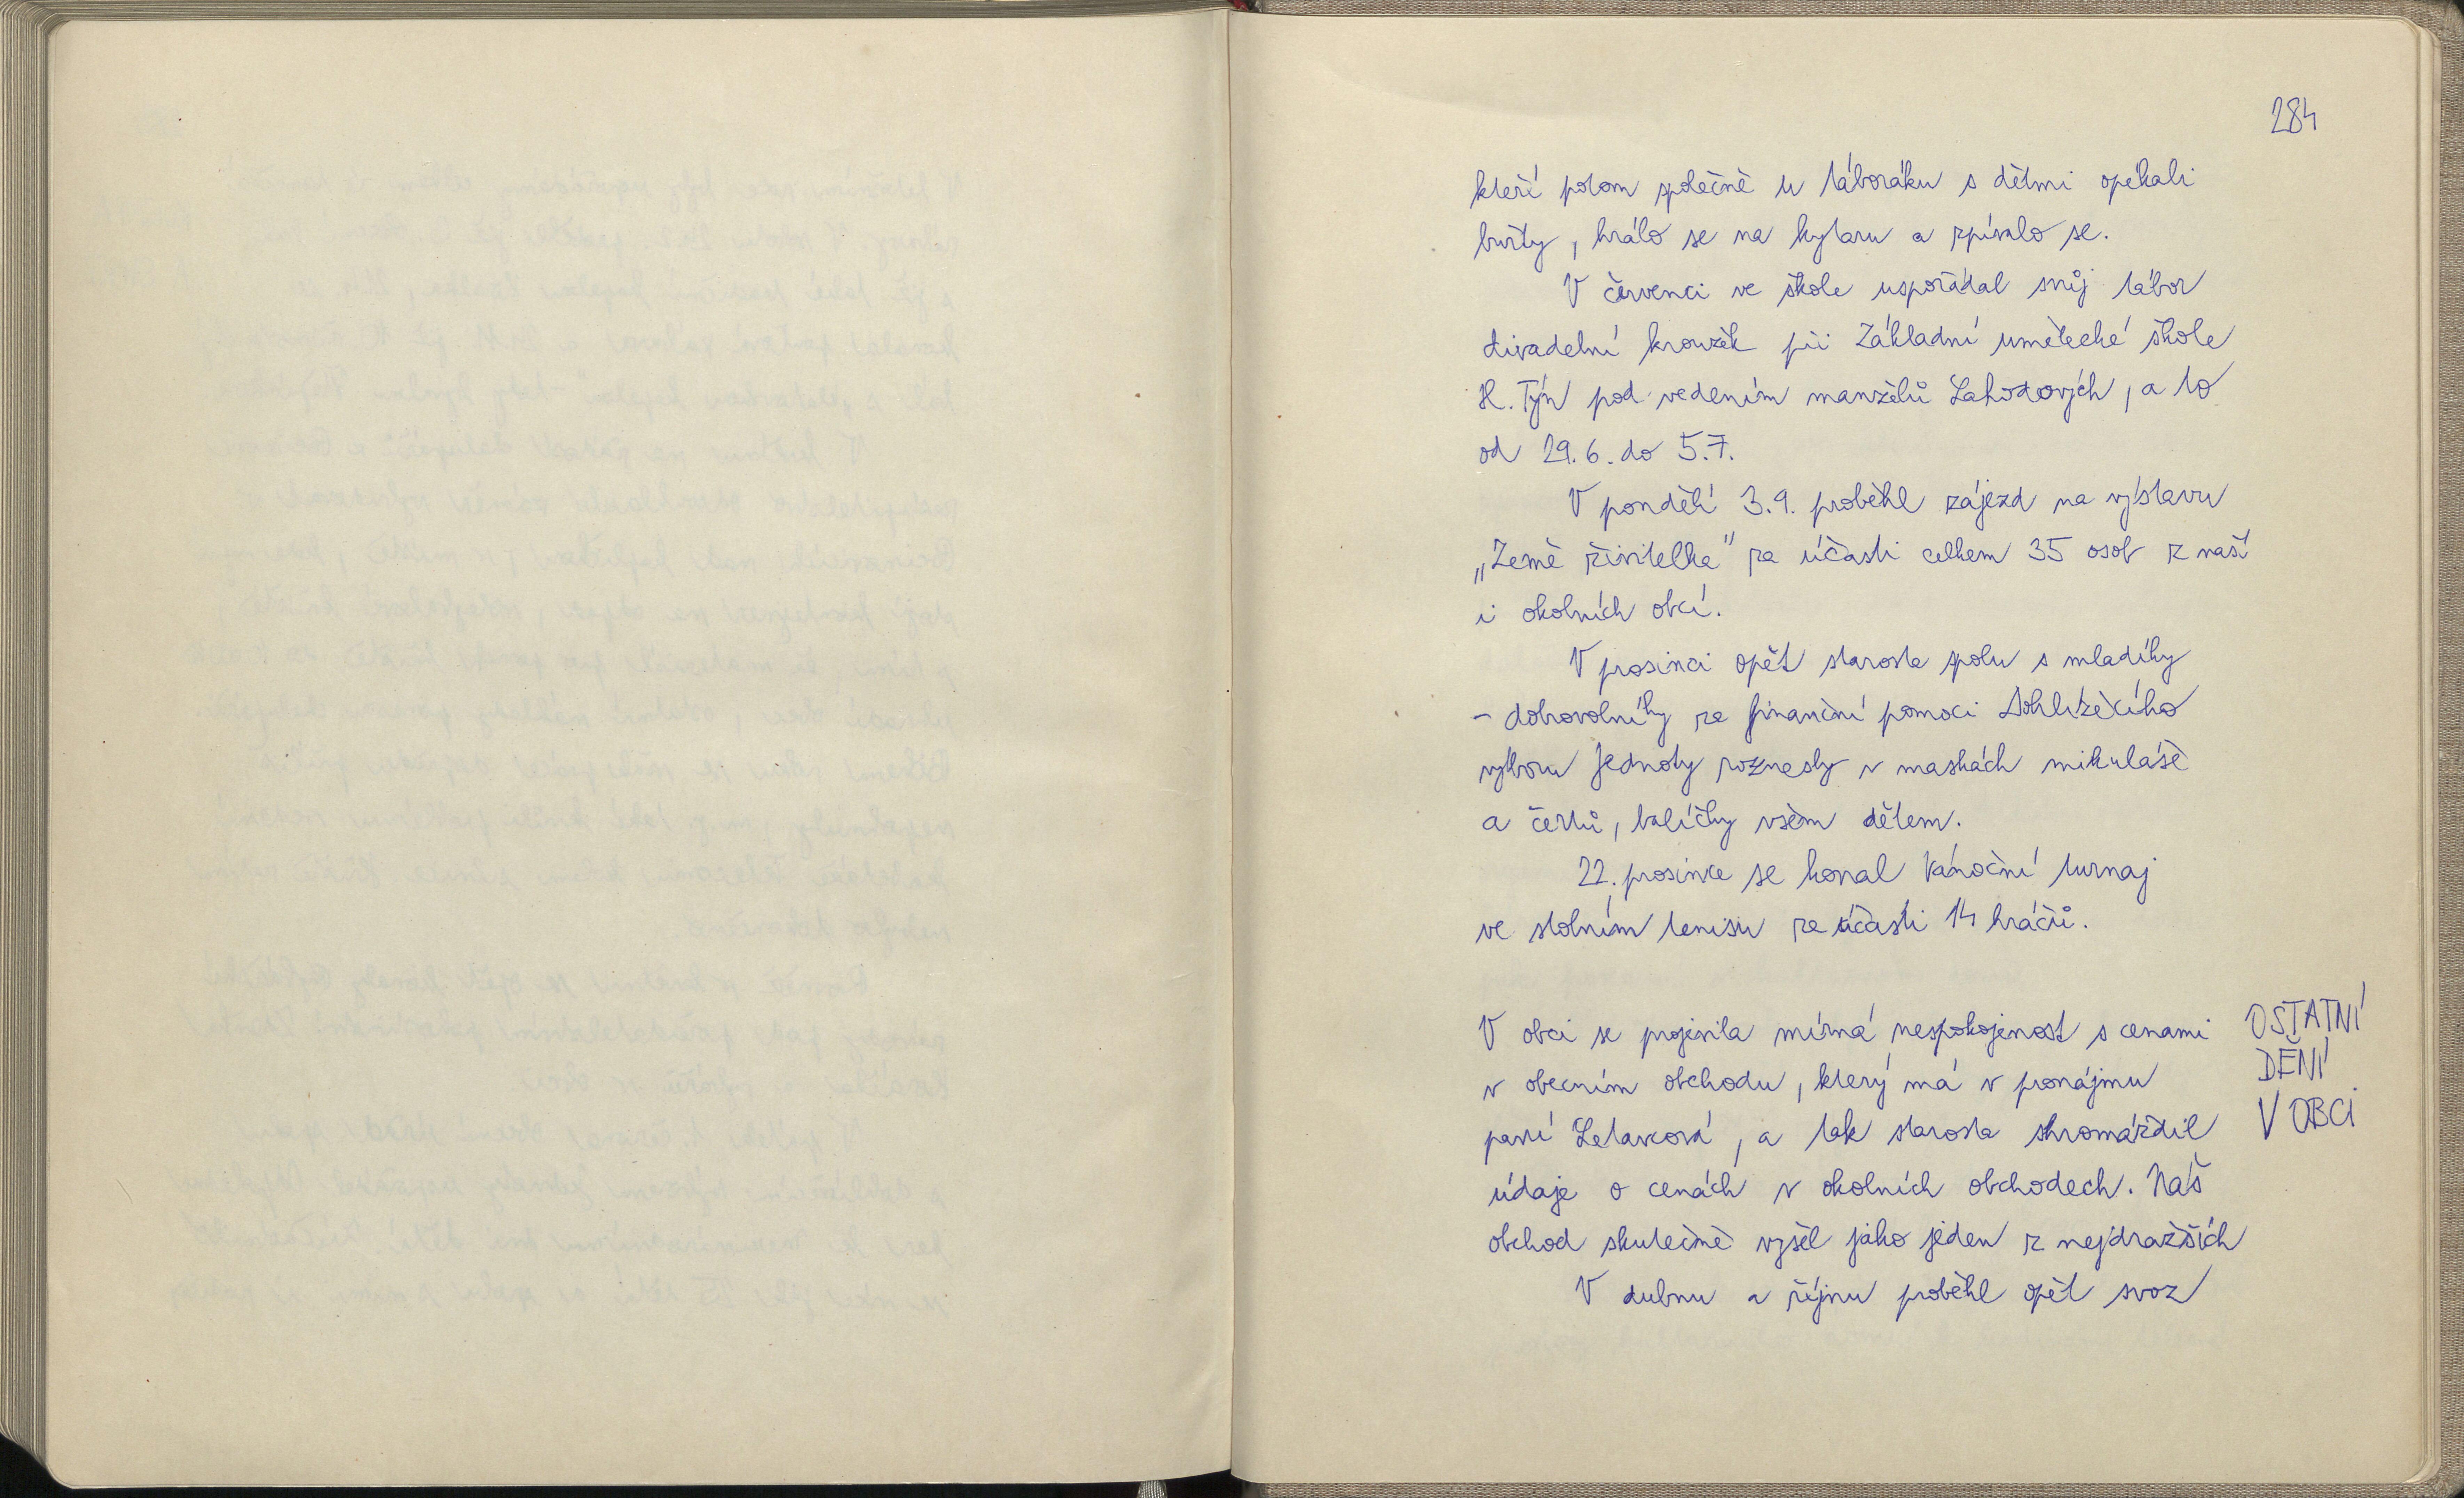 284
kteří potom společně u táboráku s dětmi opékali
buřty, hrálo se na kytaru a zpívalo se.
V červenci ve škole uspořádal svůj tábor
divadelní kroužek při Základní umělecké škole
H. Týn pod vedením manželů Lahodových, a to
od 29.6. do 5.7.
V pondělí 3.9. proběhl zájezd na výstavu
„Země živitelka" za účasti celkem 35 osob z naší
i okolních obcí.
V prosinci opět starosta spolu s mladíky
- dobrovolníky za finanční pomoci Dohlížecího
výboru Jednoty roznesly v maskách mikuláše
a čertů, balíčky všem dětem.
22. prosince se konal Vánoční turnaj
ve stolním tenisu za účasti 14 hráčů.
V obci se projevila mírná nespokojenost s cenami
v obecním obchodu, který má v pronájmu
paní Letavcová, a tak starosta shromáždil
údaje o cenách v okolních obchodech. Náš
obchod skutečně vyšel jako jeden z nejdražších
V dubnu a říjnu proběhl opět svoz
OSTATNÍ
DĚNÍ
V OBCI